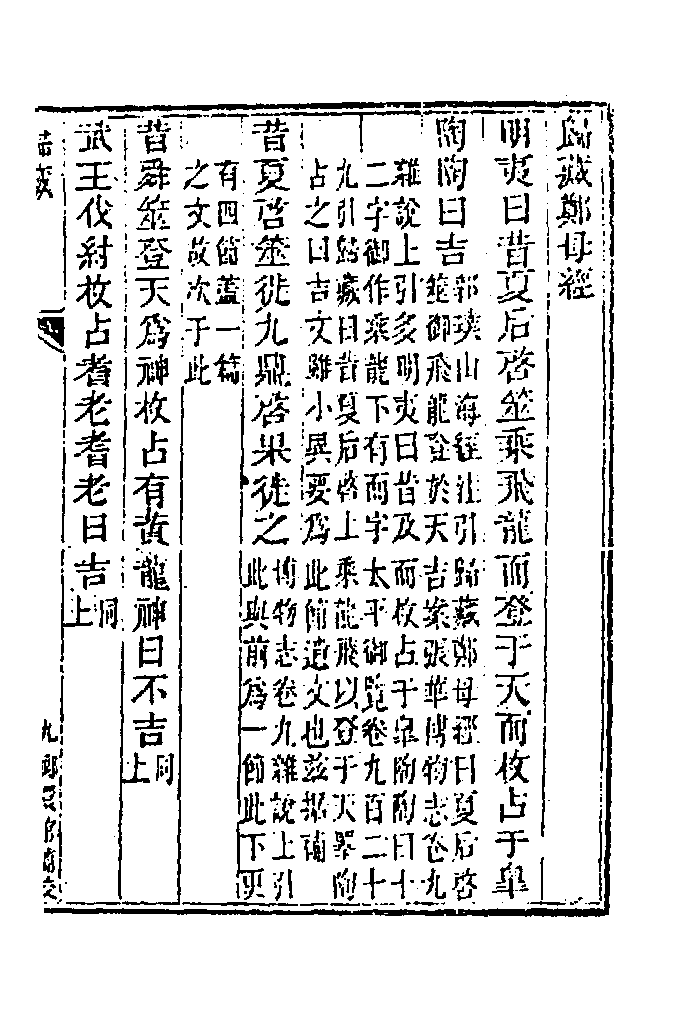 歸藏鄭母經
明夷曰昔夏后啓筮乘飛龍而登于天而枚占于皐
陶陶曰吉
郭璞山海經注引歸藏鄭母經曰夏后啓
筮御飛龍登於天吉案張華博物志卷九
雜說上引多明夷曰昔及而枚占于皐陶陶曰十
二字御作乘龍下有而字太平御覽卷九百二十
九引歸藏曰昔夏后啓上乘龍飛以登于天睪陶
占之曰吉文雖小異要爲此節遺文也兹據補
昔夏啓筮徙九鼎啓果徙之
博物志卷九雜說上引
此與前爲一節此下更
有四節蓋一篇
之文故次于此
昔舜筮登天爲神枚占有黃龍神曰不吉
同
上
武王伐紂枚占耆老耆老曰吉
同
上
歸藏
館補校